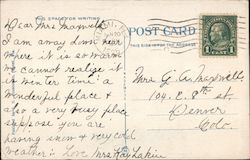 THIS SPACE FOR WRITING
POST CARD
THIS SIDE IS FOR THE ADDRESS
Dear Mrs Maxwell
I am away down near
where it is so warm
we cannot realize it
is Winter time. a
wonderful place &
also a very busy place
suppose you are
having snow & very cold
weather. Love Mrs Lakin
1 CENT 1
Mrs G. A. Maxwell,
104. E. 8th st.
Denver
Colo.